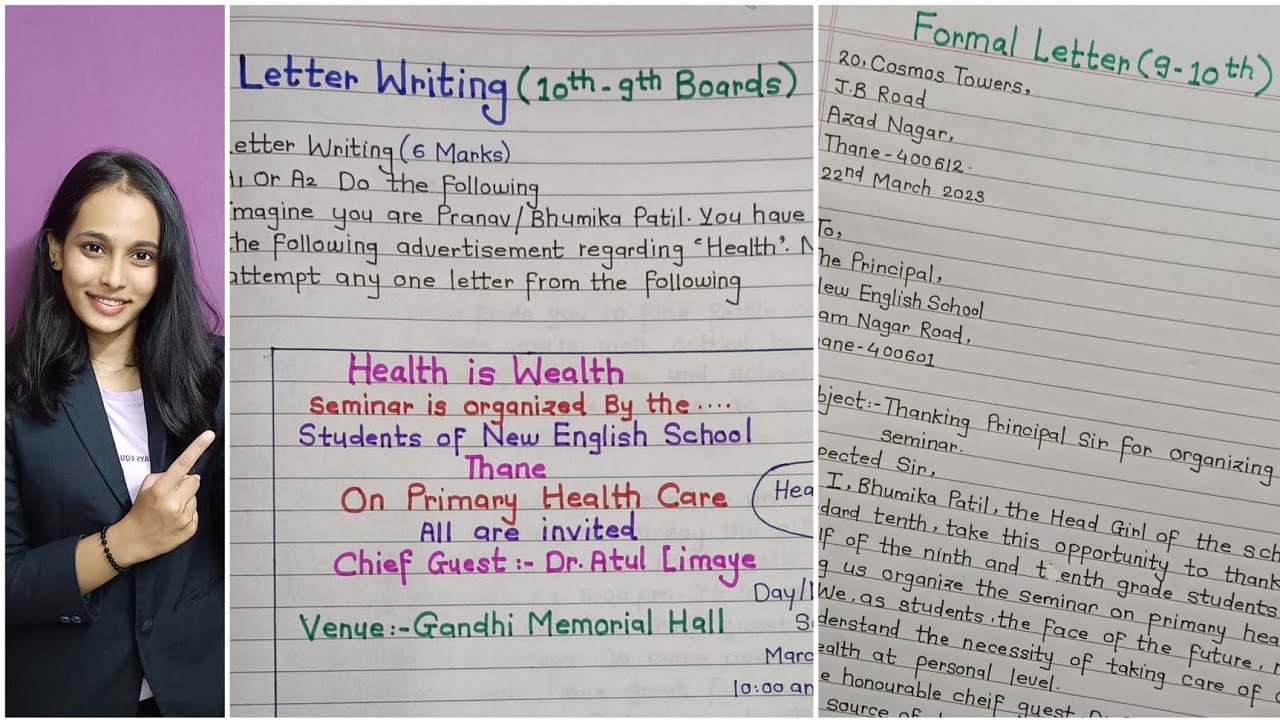 Letter Writing (10th - 9th Boards)
Letter Writing (6 Marks)
A1 Or A2 Do the following
Imagine you are Pranav/Bhumika Patil. You have
the following advertisement regarding 'Health'. N
attempt any one letter from the following
Health is Wealth
Seminar is organized By the ....
Students of New English School
Thane
On Primary Health Care
Hea
All are invited
Chief Guest :- Dr. Atul Limaye
Day/
Venue:- Gandhi Memorial Hall
S
Marc
10:00 am
Formal Letter (9-10th)
20, Cosmos Towers,
J.B Road
Azad Nagar,
Thane - 400612.
22nd March 2023
To,
The Principal,
New English School
am Nagar Road,
hane-400601
bject:- Thanking Principal Sir for organizing
seminar.
pected Sir,
I, Bhumika Patil, the Head Girl of the sch
dard tenth, take this opportunity to thank
lf of the ninth and tenth grade students
g us organize the seminar on primary hea
We, as students, the face of the future,
derstand the necessity of taking care of
ealth at personal level.
e honourable cheif guest,
source of